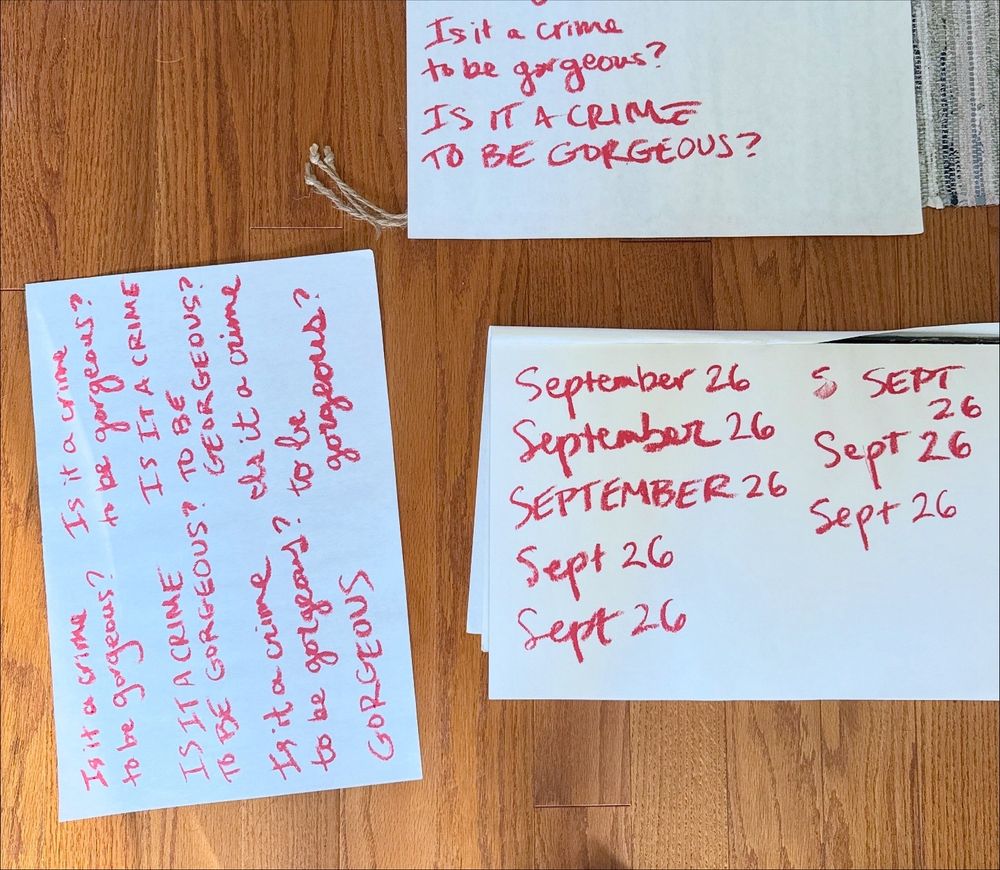 Is it a crime
to be gorgeous?
IS IT A CRIME
TO BE GORGEOUS?
Is it a crime
to be gorgeous?
Is it a crime
to be gorgeous?
IS IT A CRIME
TO BE GORGEOUS?
IS IT A CRIME
TO BE
GEORGEOUS?
Is it a crime
to be gorgeous?
Is it a crime
to be
gorgeous?
GORGEOUS
September 26
September 26
SEPTEMBER 26
Sept 26
Sept 26
S SEPT
26
Sept 26
Sept 26